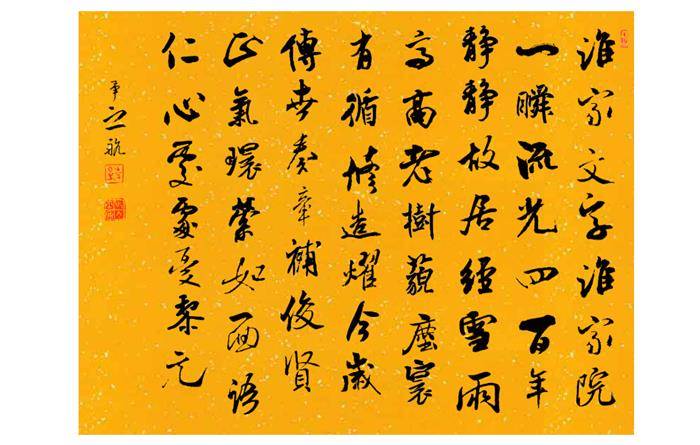 誰家文字誰家院
一瞬流光四百年
靜靜故居經雪雨
高高老樹藐塵寰
有循修造耀今歲
傳世奏章補俊賢
正氣環縈如面語
仁心處處憂黎元
之航